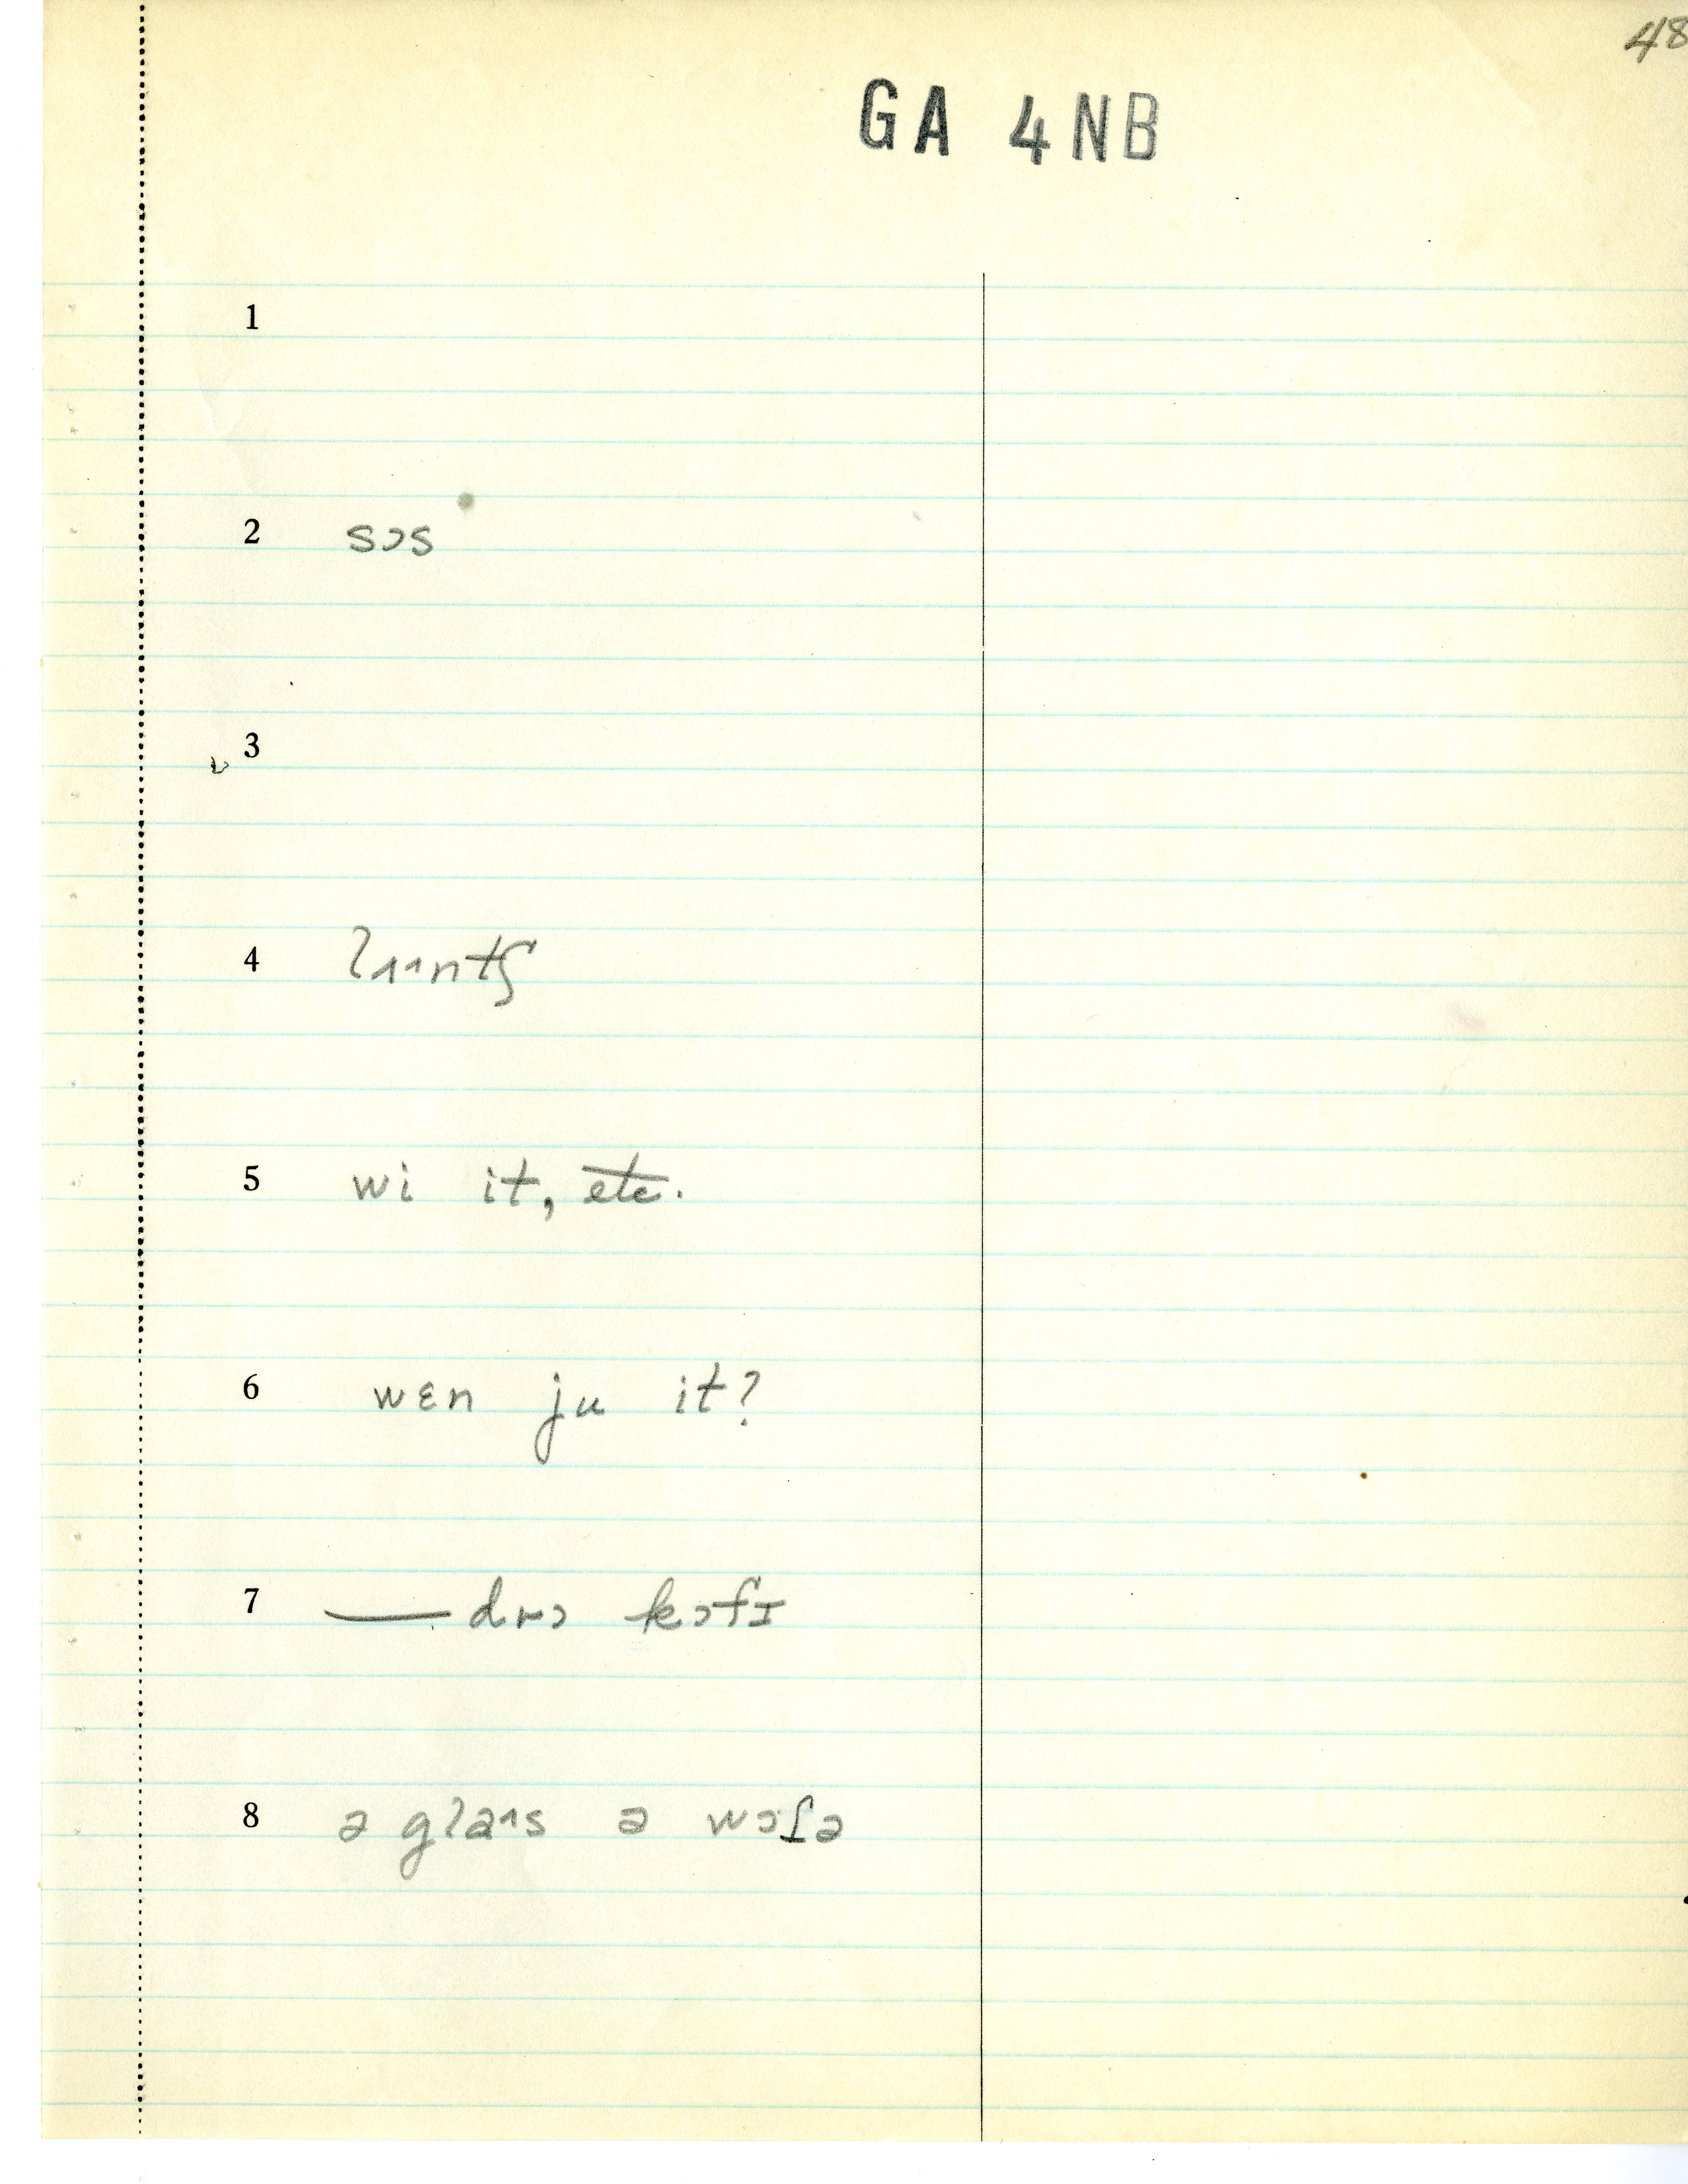 48
GA 4NB
1
2 sɔs
3
4 lʌʌntʃ
5 wi it, etc.
6 wɛn ju it?
7 — drɔ kɔfɪ
8 ə glaʌs ə wɔʃə